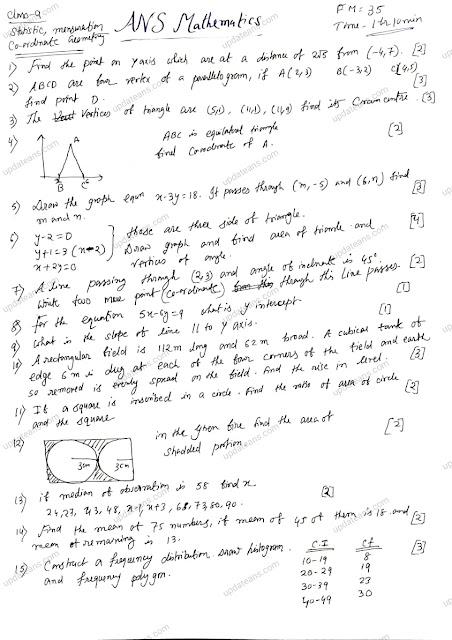 Class-9
Statistic, mensuration
Co-ordinate Geometry
ANS Mathematics
FM = 35
Time - 1 hr 10 min
1) Find the point on y axis which are at a distance of 2√5 from (-4,7). [2]
2) ABCD are four vertex of a parallelogram, if A(2,3) B(-3,2) C(4,5)
find point D. [3]
3) The vertices of triangle are (5,1), (11,1), (11,9) find its Circumcentre. [3]
4) ABC is equilateral triangle
find Coordinate of A. [2]
A
B C
5) Draw the graph equn x-3y=18. It passes through (m,-5) and (6,n) find
m and n. [3]
6) y-2=0
y+1=3(x-2)
x+2y=0
these are three side of triangle.
Draw graph and find area of triangle and
vertices of angle. [4]
7) A line passing through (2,3) and angle of inclination is 45°.
Write two more point (co-ordinate) through this line passes. [2]
8) For the equation 5x-6y=9 what is y intercept. [1]
9) What is the slope of line 11 to y axis. [1]
10) A rectangular field is 112m long and 62m broad. A cubical tank of
edge 6m is dug at each of the four corners of the field and earth
so removed is evenly spread on the field. Find the rise in level. [3]
11) If a square is inscribed in a circle. Find the ratio of area of circle
and the square [2]
12) in the given fire find the area of
shadded portion. [2]
3cm 3cm
13) if median of observation is 58 find x [2]
24, 27, 43, 48, x-1, x+3, 68, 73, 80, 90.
14) Find the mean of 75 numbers, if mean of 45 of them is 18 and
mean of remaining is 13. [2]
15) Construct a frequency distribution. Draw histogram
and frequency polygon. [3]
C.I Cf
10-19 8
20-29 19
30-39 23
40-49 30
updateans.com